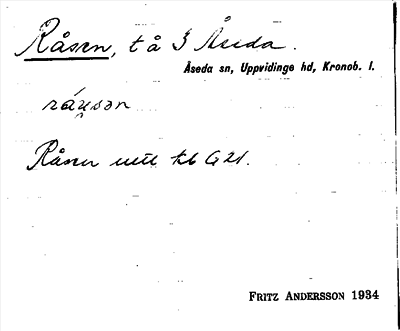 Råsen, t å 3 Åseda.
Åseda sn, Uppvidinge hd, Kronob. l.
råu̯sən
Råsen kb G 21.
FRITZ ANDERSSON 1934